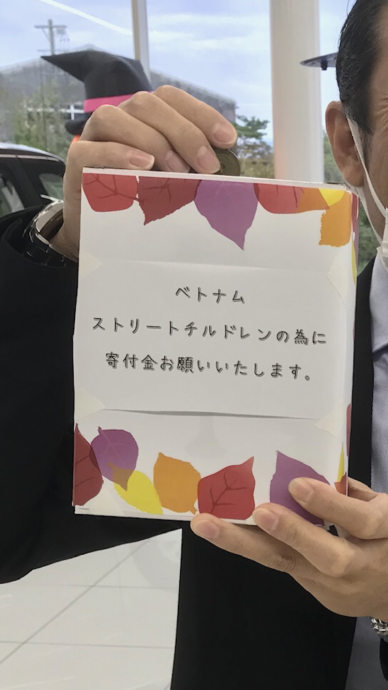 ベトナム
ストリートチルドレンの為に
寄付金お願いいたします。